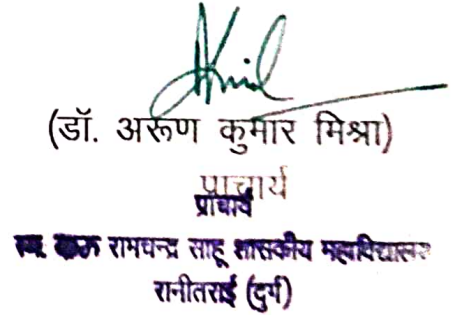 (डॉ. अरूण कुमार मिश्रा)
प्राचार्य
प्राचार्य
स्व. दाऊ रामचन्द्र साहू शासकीय महाविद्यालय
रानीतराई (दुर्ग)